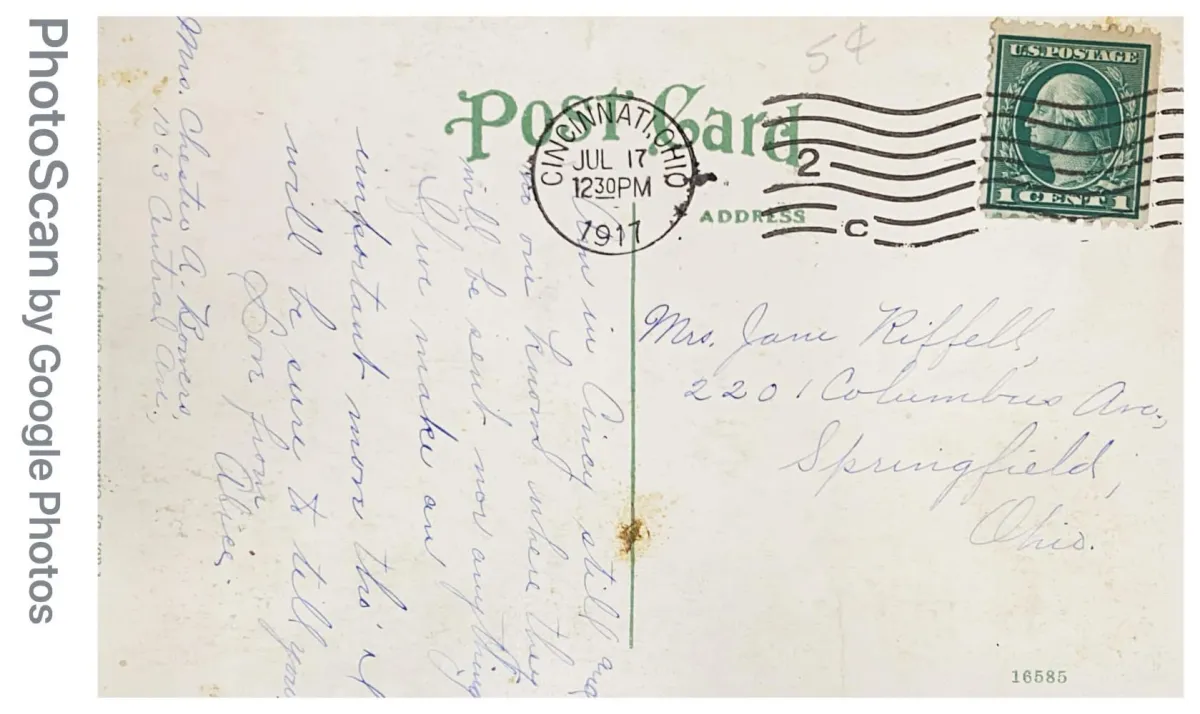 PhotoScan by Google Photos
5¢
Post Card
CINCINNATI, OHIO
JUL 17
1230PM
1917
2
C
U.S. POSTAGE
1 CENT 1
ADDRESS
Mrs. Jane Riffell,
2201 Columbus Ave,
Springfield,
Ohio.
in Cincy still and
no one knows where they
will be sent nor any thing
Give make an
important move this I
will be sure to tell you
Love from
Alice.
Mrs. Chester A. Bowers,
1863 Central Ave.,
16585